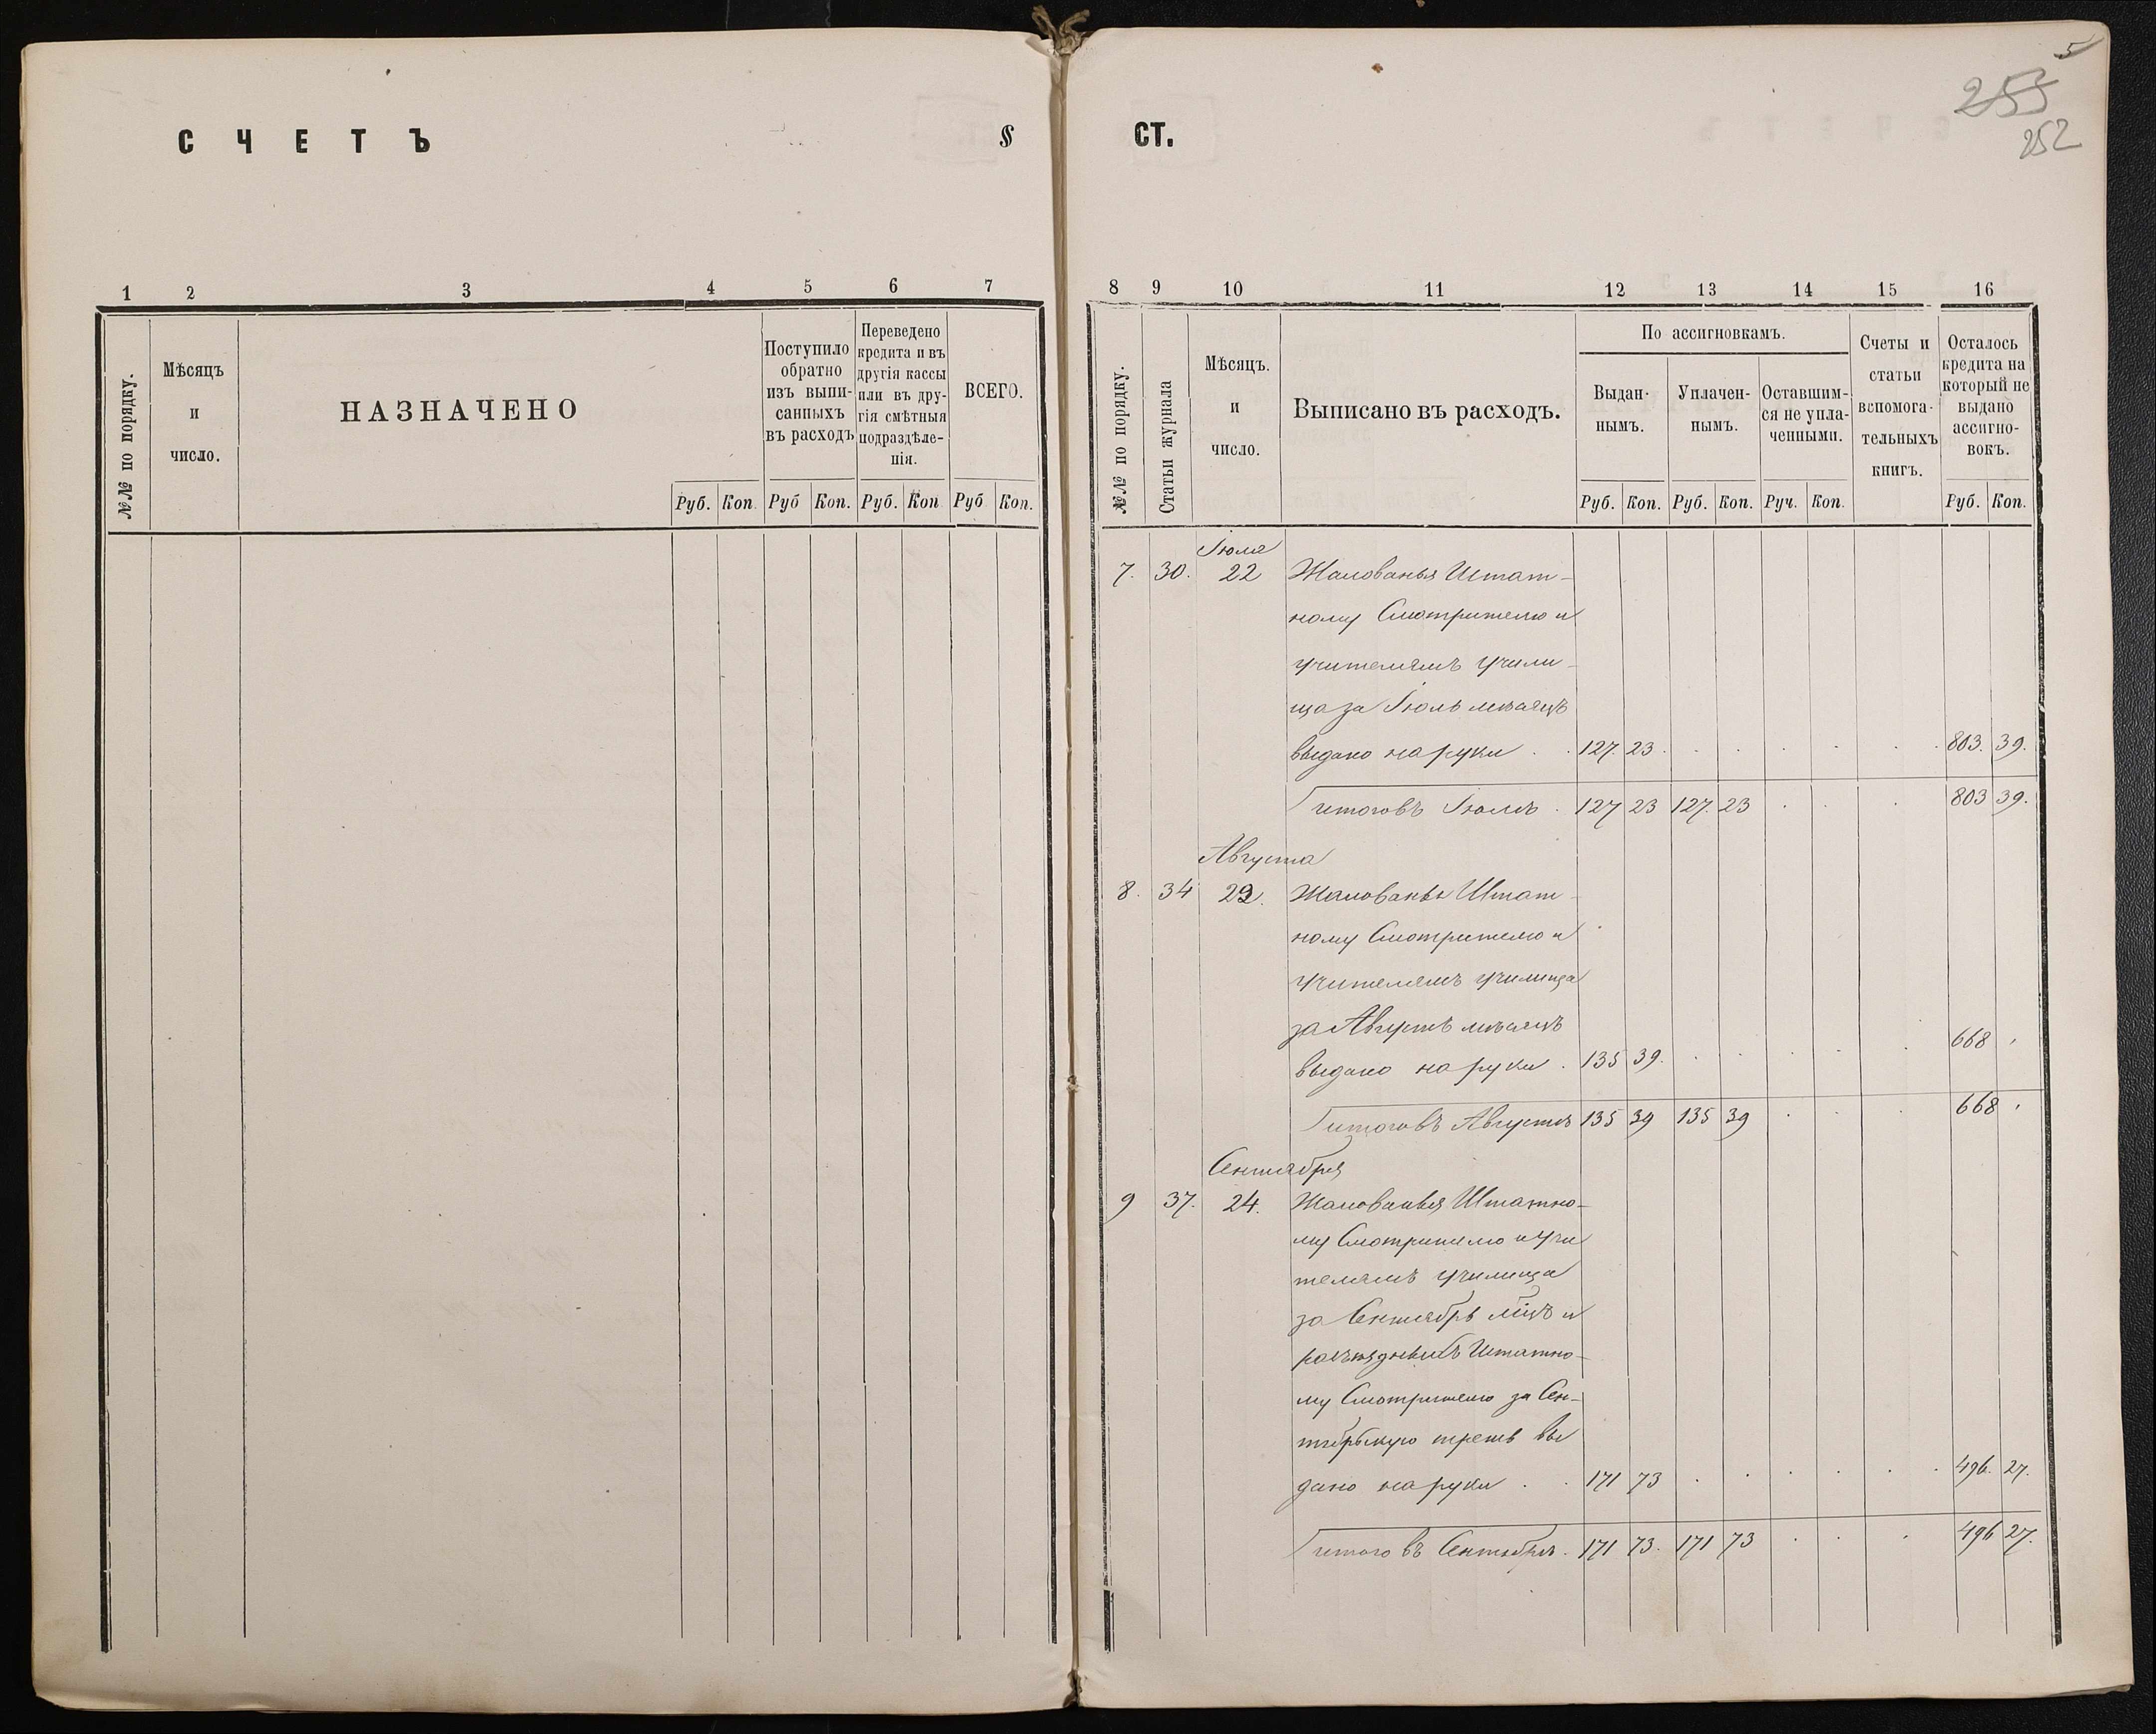 С Ч Е Т Ъ §
1 2 3 4 5 6 7
№№ по порядку.
Мѣсяцъ
и
число.
НАЗНАЧЕНО
Поступило
обратно
изъ выпи-
санныхъ
въ расходъ
Переведено
кредита и въ
другія кассы
или въ дру-
гія смѣтныя
подраздѣле-
нія.
ВСЕГО.
Руб. Коп. Руб Коп. Руб. Коп Руб Коп.
5
255
252
СТ.
8 9 10 11 12 13 14 15 16
№№ по порядку.
Статьи журнала
Мѣсяцъ.
и
число.
Выписано въ расходъ.
По ассигновкамъ.
Выдан-
нымъ.
Уплачен-
нымъ.
Оставшим-
ся не упла-
ченными.
Счеты и
статьи
вспомога-
тельныхъ
книгъ.
Осталось
кредита на
который не
выдано
ассигно-
вокъ.
Руб. Коп. Руб. Коп. Руч. Коп. Руб. Коп.
Іюля
7. 30. 22 Жалованья Штат-
ному Смотрителю и
учителямъ учили-
ща за Іюль мѣсяцъ
выдано на руки . . 127. 23. . . . . . . 803. 39.
Итого въ Іюлѣ . 127 23 127. 23 . . . 803 39.
Августа
8. 34 22. Жалованья Штат-
ному Смотрителю и
учителямъ училища
за Августъ мѣсяцъ
выдано на руки . 135 39. . . . . . 668 .
Итого въ Августѣ 135 39 135 39 . . . 668 .
Сентября
9 37. 24. Жалованья Штатно-
му Смотрителю и учи
телямъ училища
за Сентябрь мцъ и
разъѣздныхъ Штатно-
му Смотрителю за Сен-
тябрьскую треть вы
дано на руки . . 171 73 . . . . . . 496. 27.
Итого въ Сентябрѣ . 171 73. 171 73 . . . 496 27.